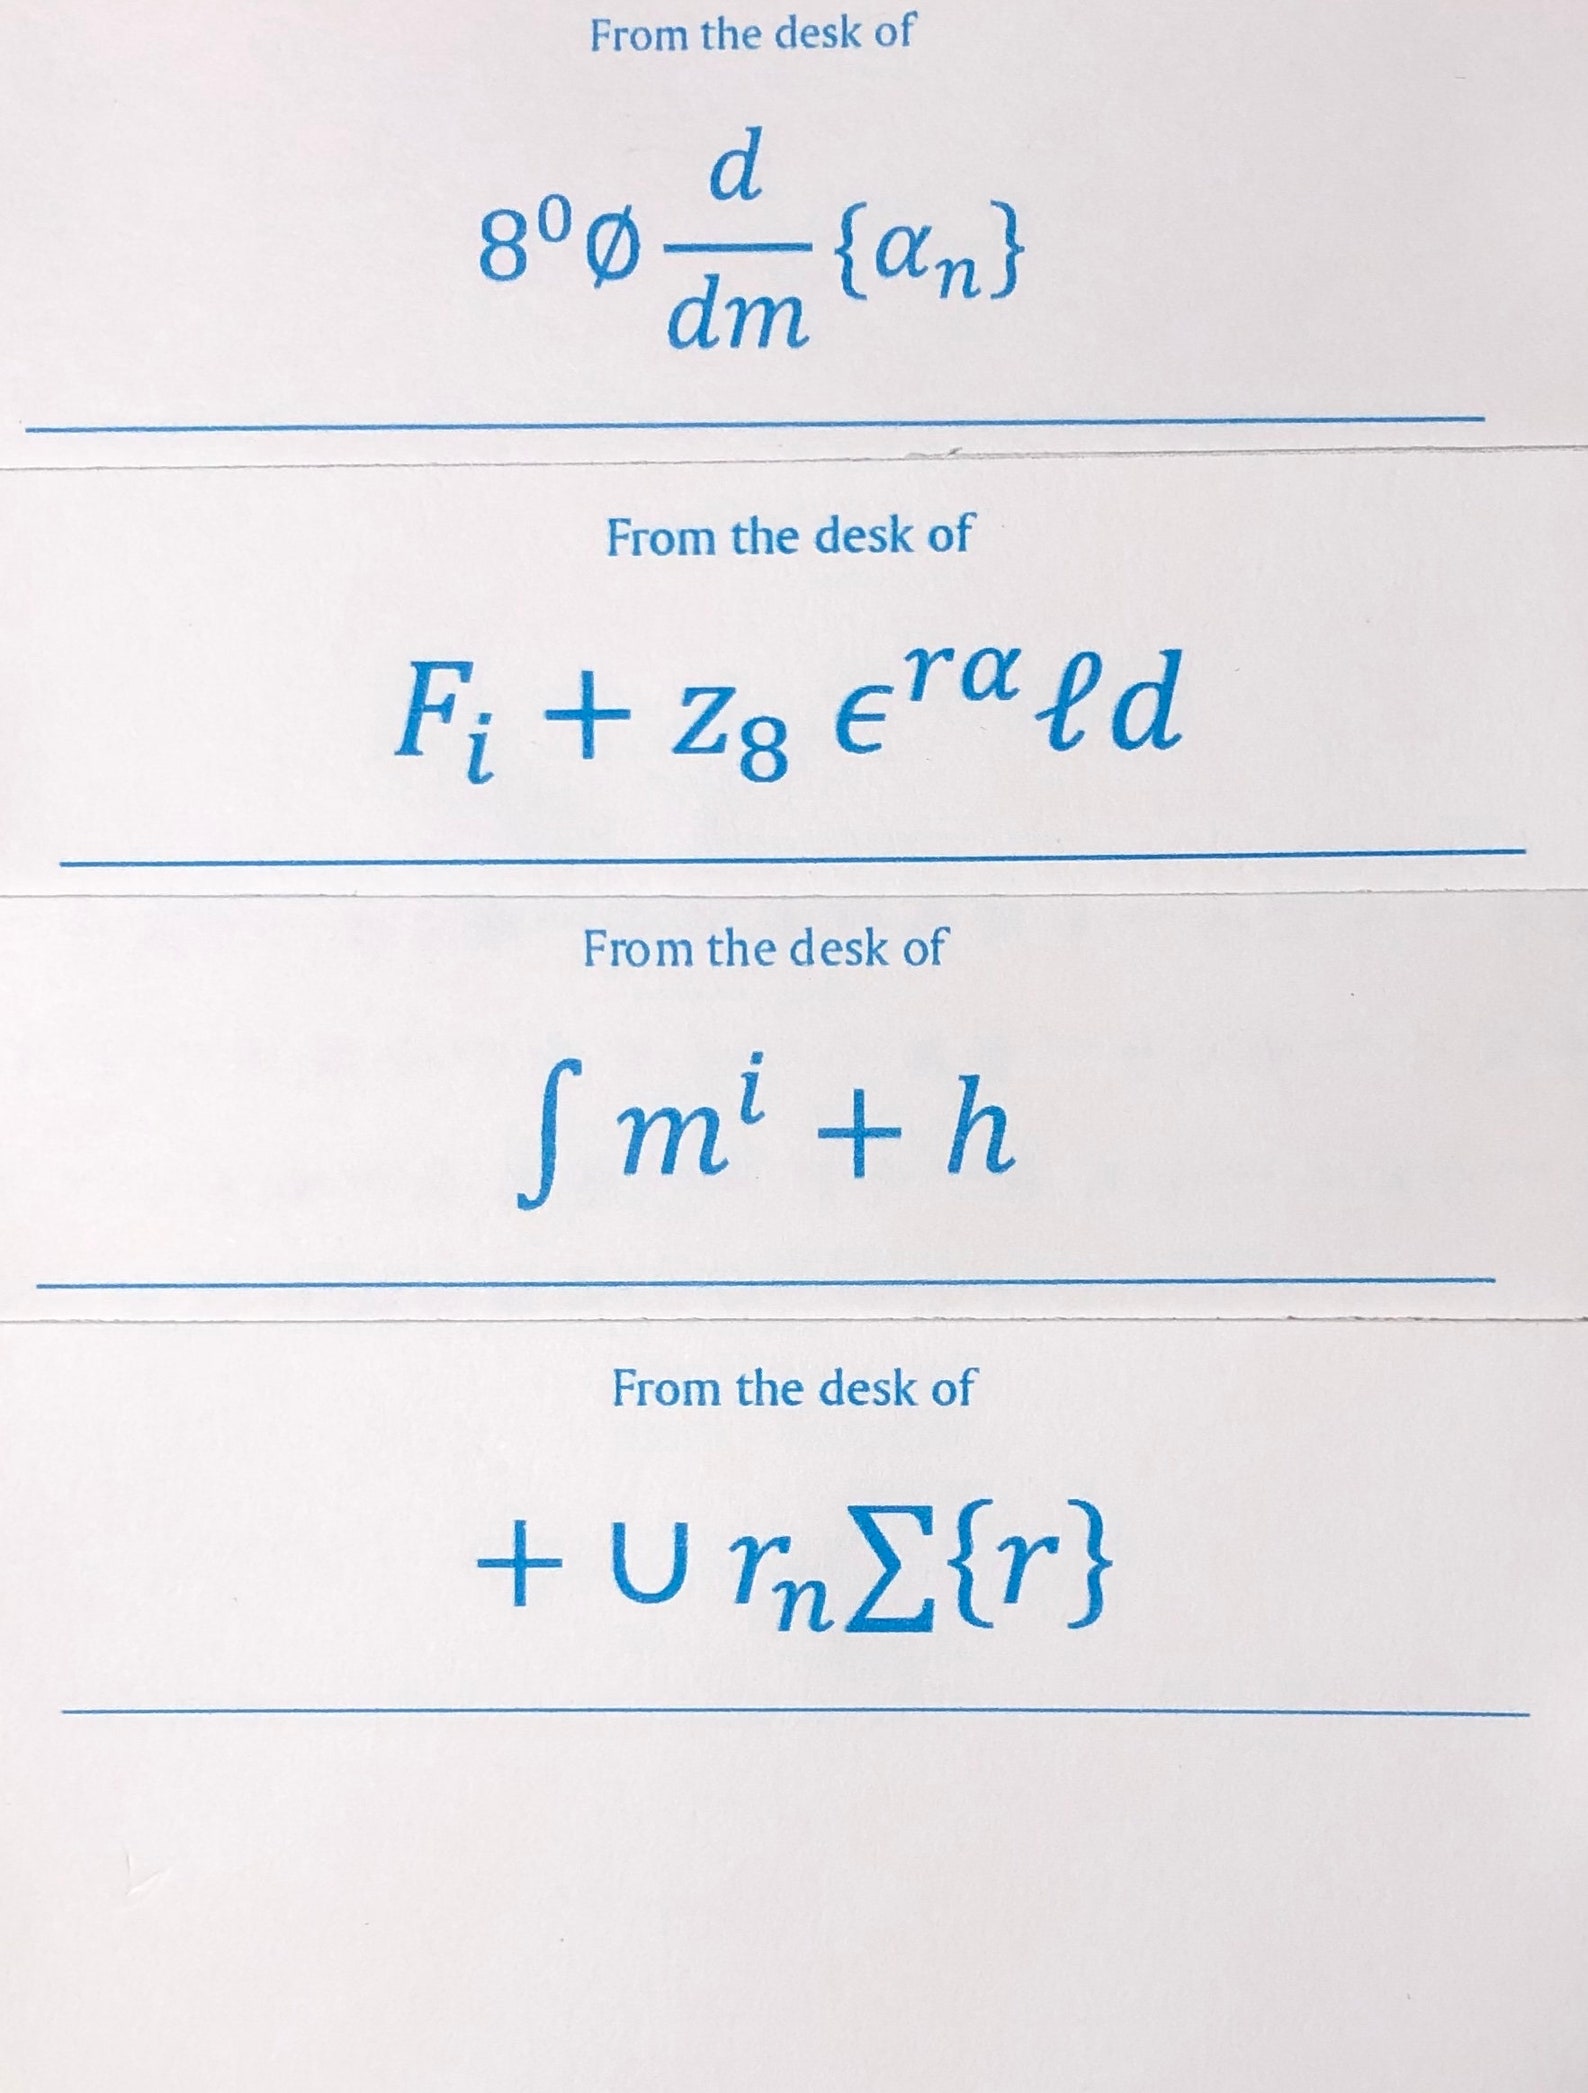 From the desk of
8⁰∅ d/dm {αₙ}
From the desk of
Fᵢ + z₈ ϵʳᵅ ℓd
From the desk of
∫ mⁱ + h
From the desk of
+ ∪ rₙ∑{r}